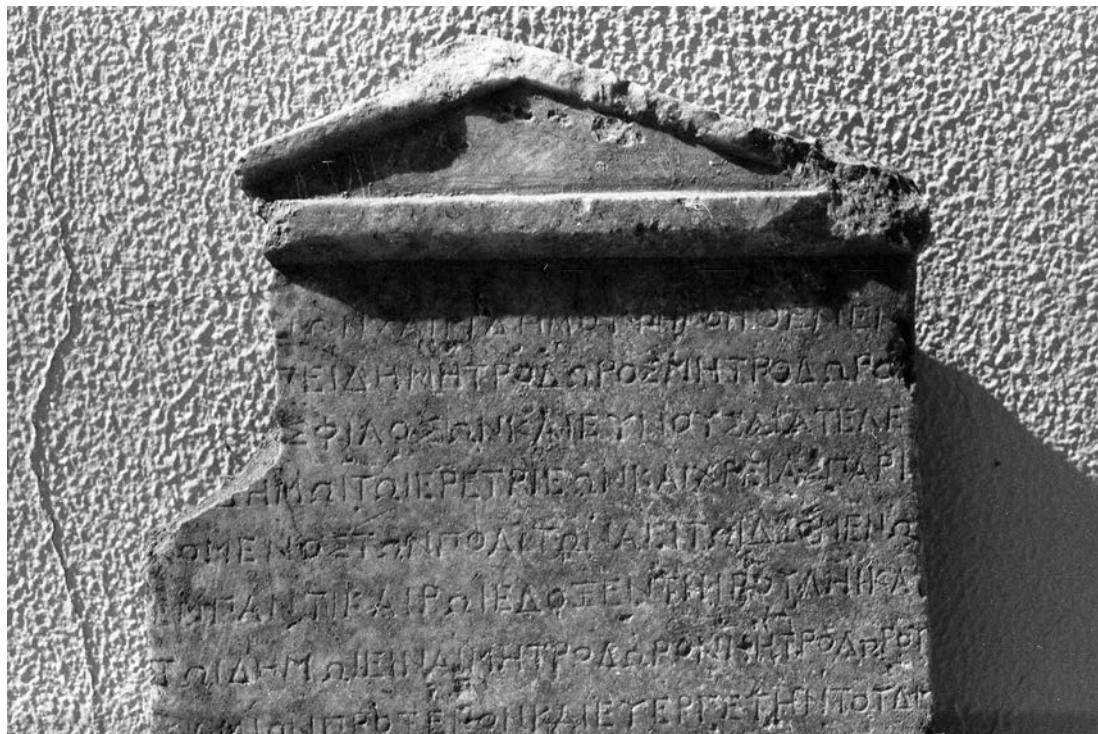 ΠΕΙΔΗΜΗΤΡΟΔΩΡΟΣΜΗΤΡΟΔΩΡΟ
ΣΦΙΛΟΣΩΝΚΑΙΕΥΝΟΥΣΔΙΑΤΕΛΕ
ΔΗΜΩΙΤΩΙΕΡΕΤΡΙΕΩΝΚΑΙΧΡΕΙΑΣΠΑΡΕ
ΧΟΜΕΝΟΣΤΩΝΠΟΛΙΤΩΝΑΕΙΤΩΙΔΕΟΜΕΝΩ
ΕΜΠΑΝΤΙΚΑΙΡΩΙΕΔΟΞΕΝΤΗΙΒΟΥΛΗΙΚΑ
ΤΩΙΔΗΜΩΙΕΙΝΑΙΜΗΤΡΟΔΩΡΟΝΜΗΤΡΟΔΩΡΟΥ
ΠΡΟΞΕΝΟΝΚΑΙΕΥΕΡΓΕΤΗΝΤΟΥΔΗ